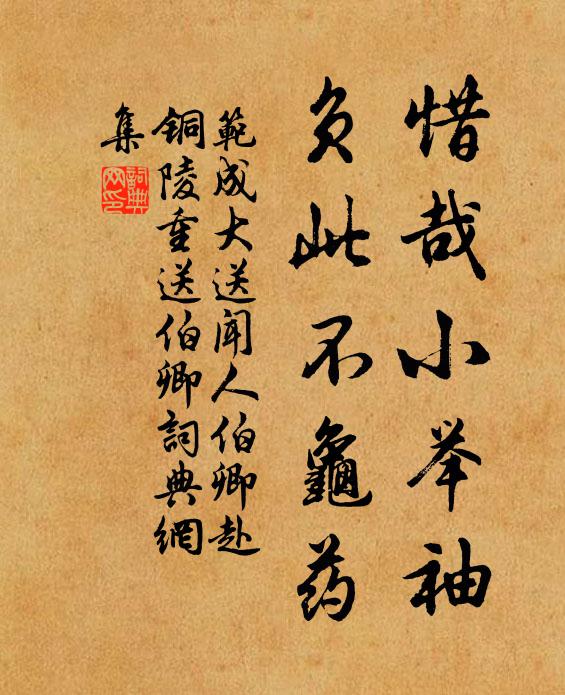 惜哉小举袖
负此不龜药
範成大送闻人伯卿赴
铜陵重送伯卿詞典網
集
詞典网印